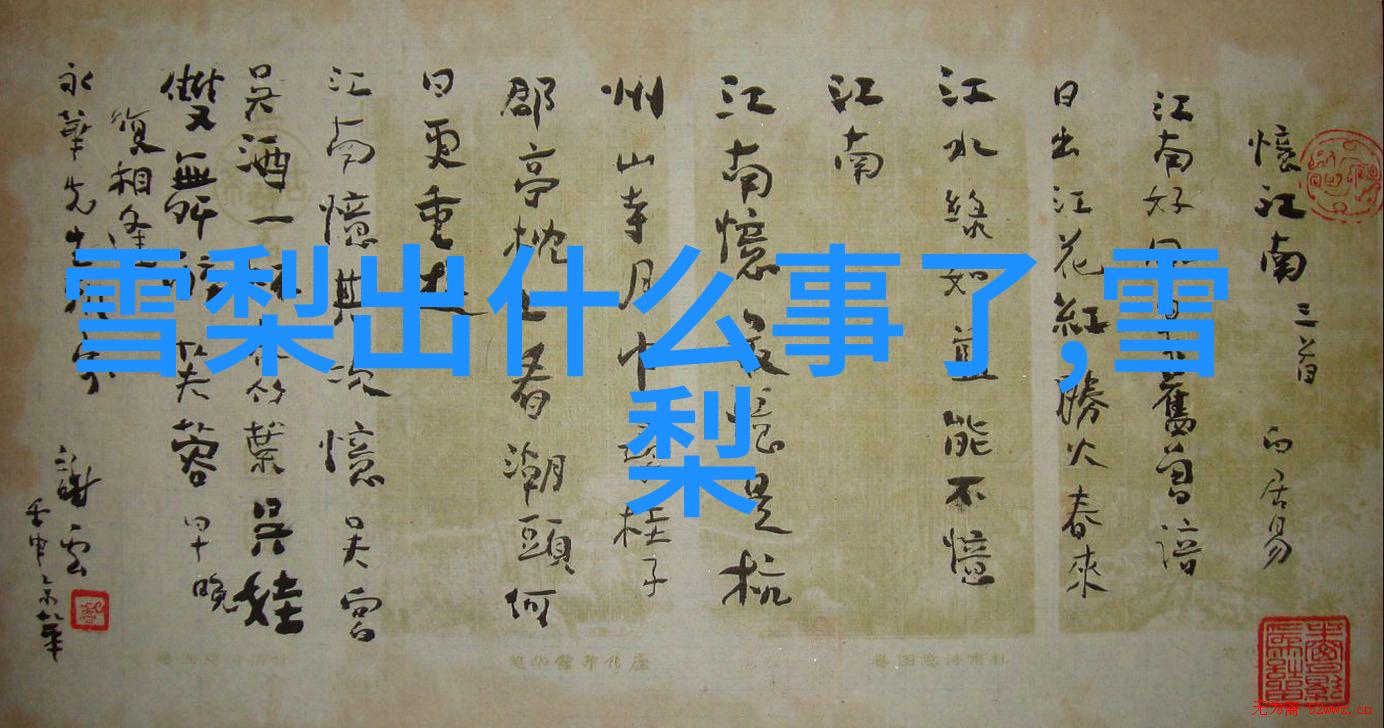 雪梨出什么事了,雪
梨
憶江南 三首 白居易
江南好風
舊曾諳
日出江花紅勝火春來
江水綠如
能不憶
江南
江南憶
憶是杭
州山寺月中
桂子
郡亭枕上看潮頭何
日更重
江南憶其次憶吳宮
吳酒一杯
竹葉吳娃
雙無
芙蓉早晚
復相逢
永華先生
謝雲
无为斋 52wwz.cn